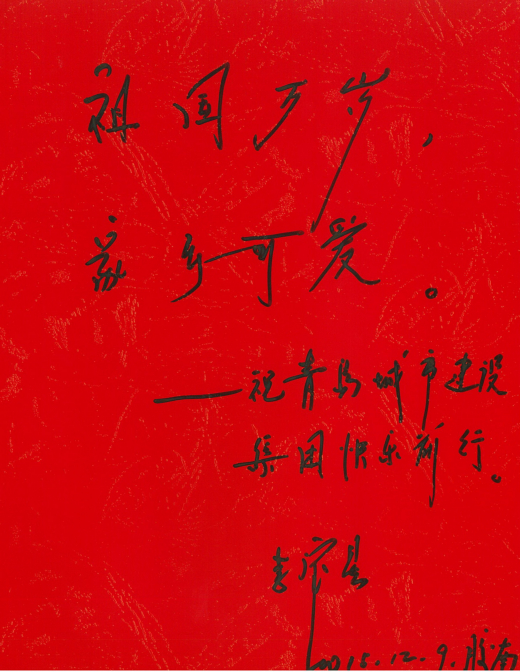 祖国万岁，
家乡可爱。
——祝青岛城市建设
集团快乐前行。
李宗
2015.12.9.胶南